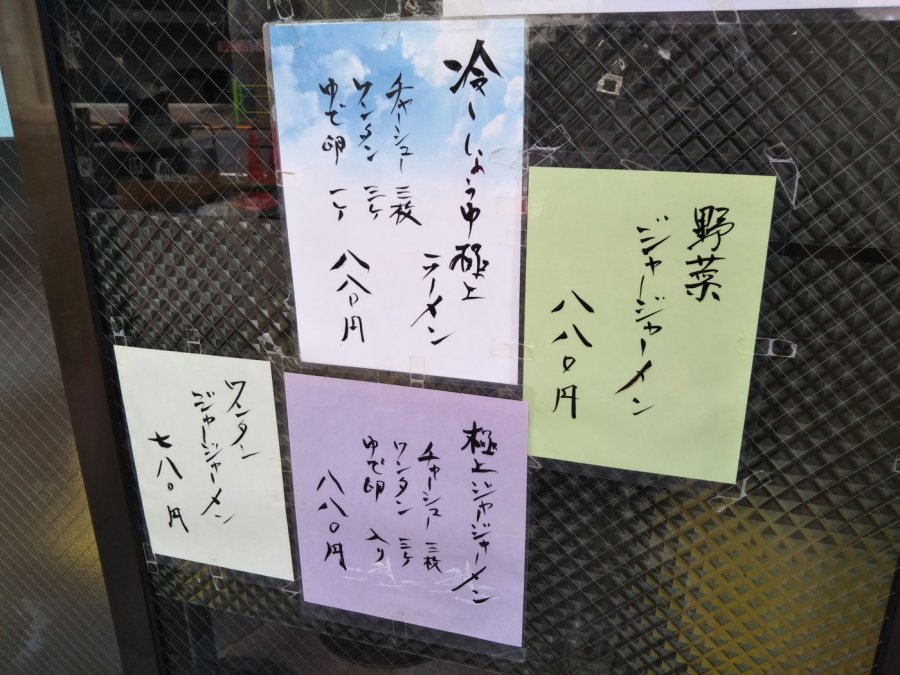 冷ししょうゆ極上
ラーメン
チャーシュー 三枚
ワンタン 三ケ
ゆで卵 一ケ
八八〇円
野菜
ジャージャーメン
八八〇円
極上ジャージャーメン
チャーシュー 三枚
ワンタン 三ケ
ゆで卵 入り
八八〇円
ワンタン
ジャージャーメン
七八〇円